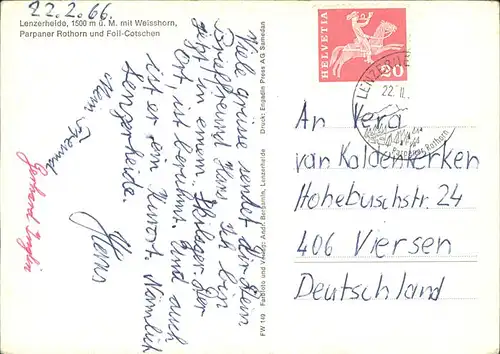 22.2.66.
Lenzerheide, 1500 m ü. M. mit Weisshorn,
Parpaner Rothorn und Foil-Cotschen
HELVETIA
20
LENZERHEIDE
22. II.
Parpaner Rothorn
Viele grüsse sendet dir Dein
Brieffreund Hans. Ich bin
jetzt in einem Skilager. Der
Ort, ist berühmt. Und auch
ist er ein Kurort. Nämlich
Lenzerheide.
Hans
Mein Freund
Gerhard
FW 149 Farbfoto und Verlag: Andr. Benjamin, Lenzerheide Druck: Engadin Press AG Samedan
An Vera
van Kaldenkerken
Hohebuschstr. 24
406 Viersen
Deutschland